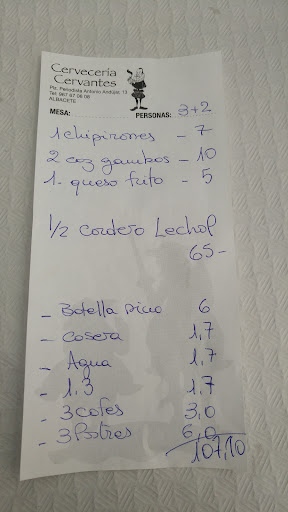 Cervecería
Cervantes
Plz. Periodista Antonio Andújar, 13
Tel. 967 67 08 08
ALBACETE
MESA: PERSONAS: 3+2
1 chipirones - 7
2 coz gambos - 10
1. queso frito - 5
1/2 cordero Lechal
65-
- Botella vino 6
- Casera 1,7
- Agua 1,7
- 1.3 1,7
- 3 cofes 3,0
- 3 Postres 6,0
107,10